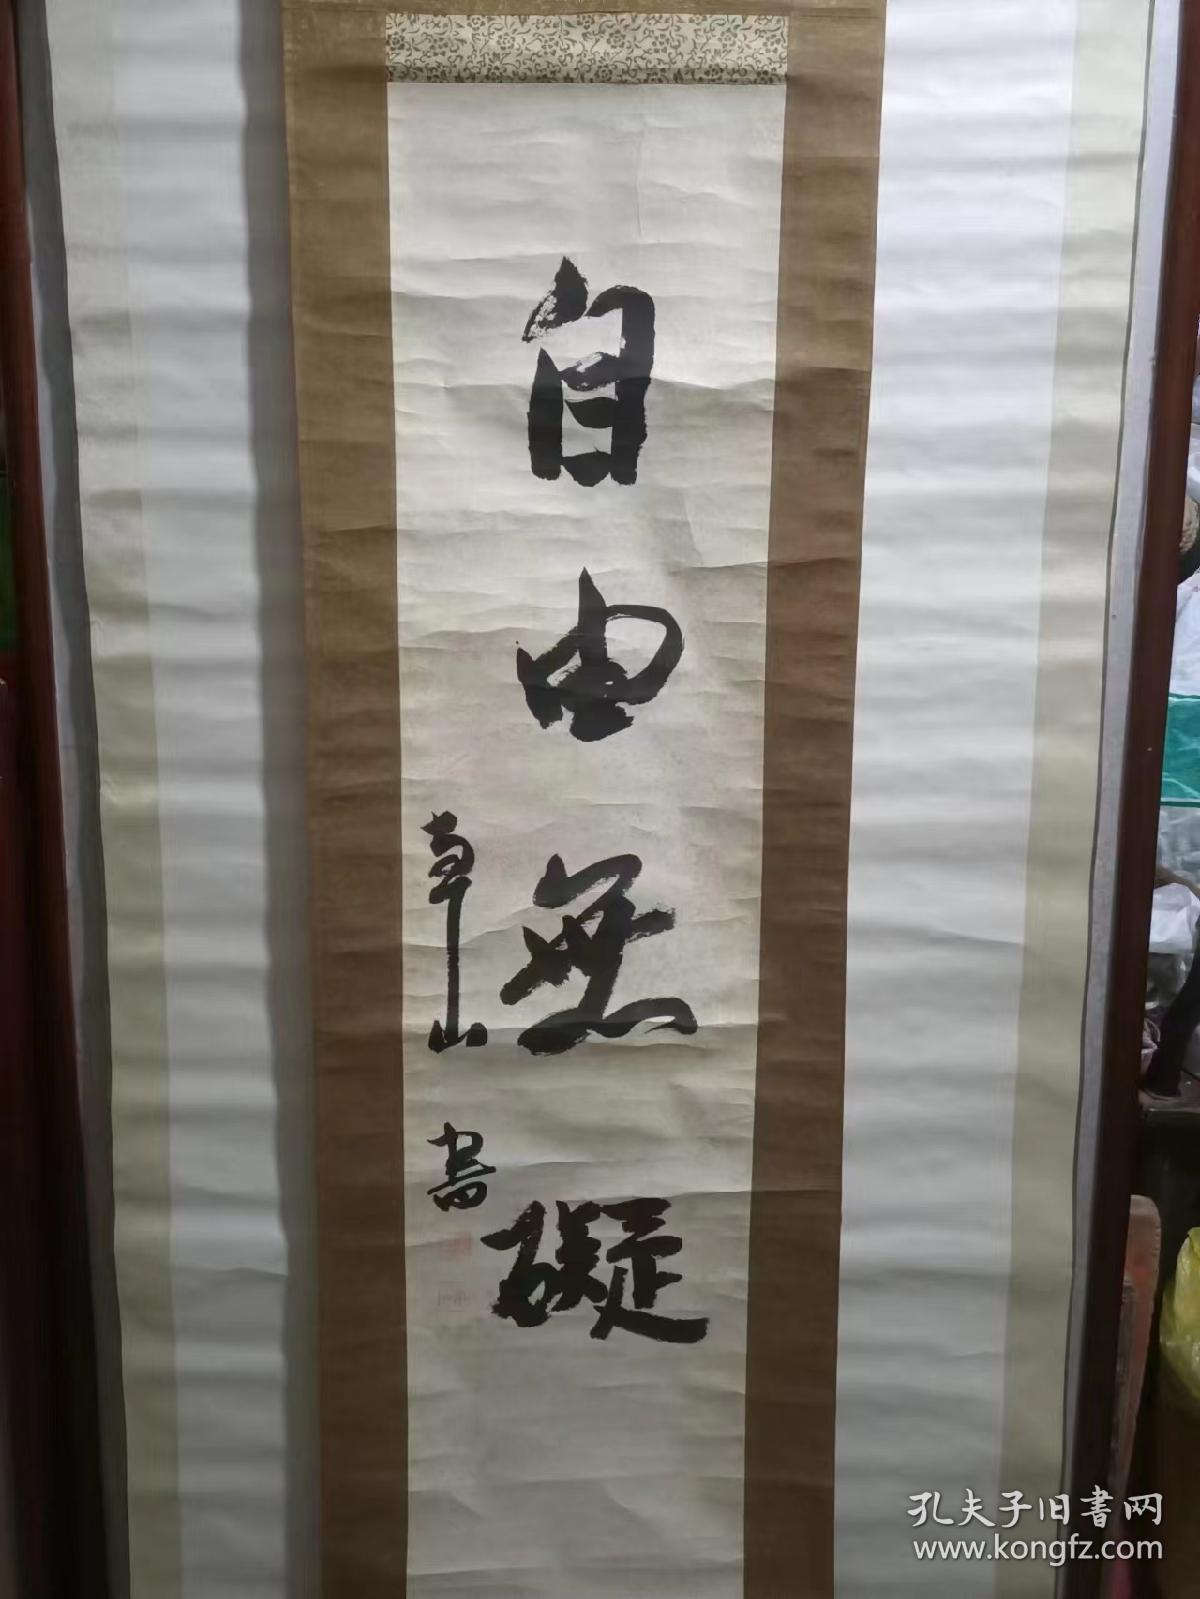 自由無礙
卓山書
孔夫子旧書网
www.kongfz.com